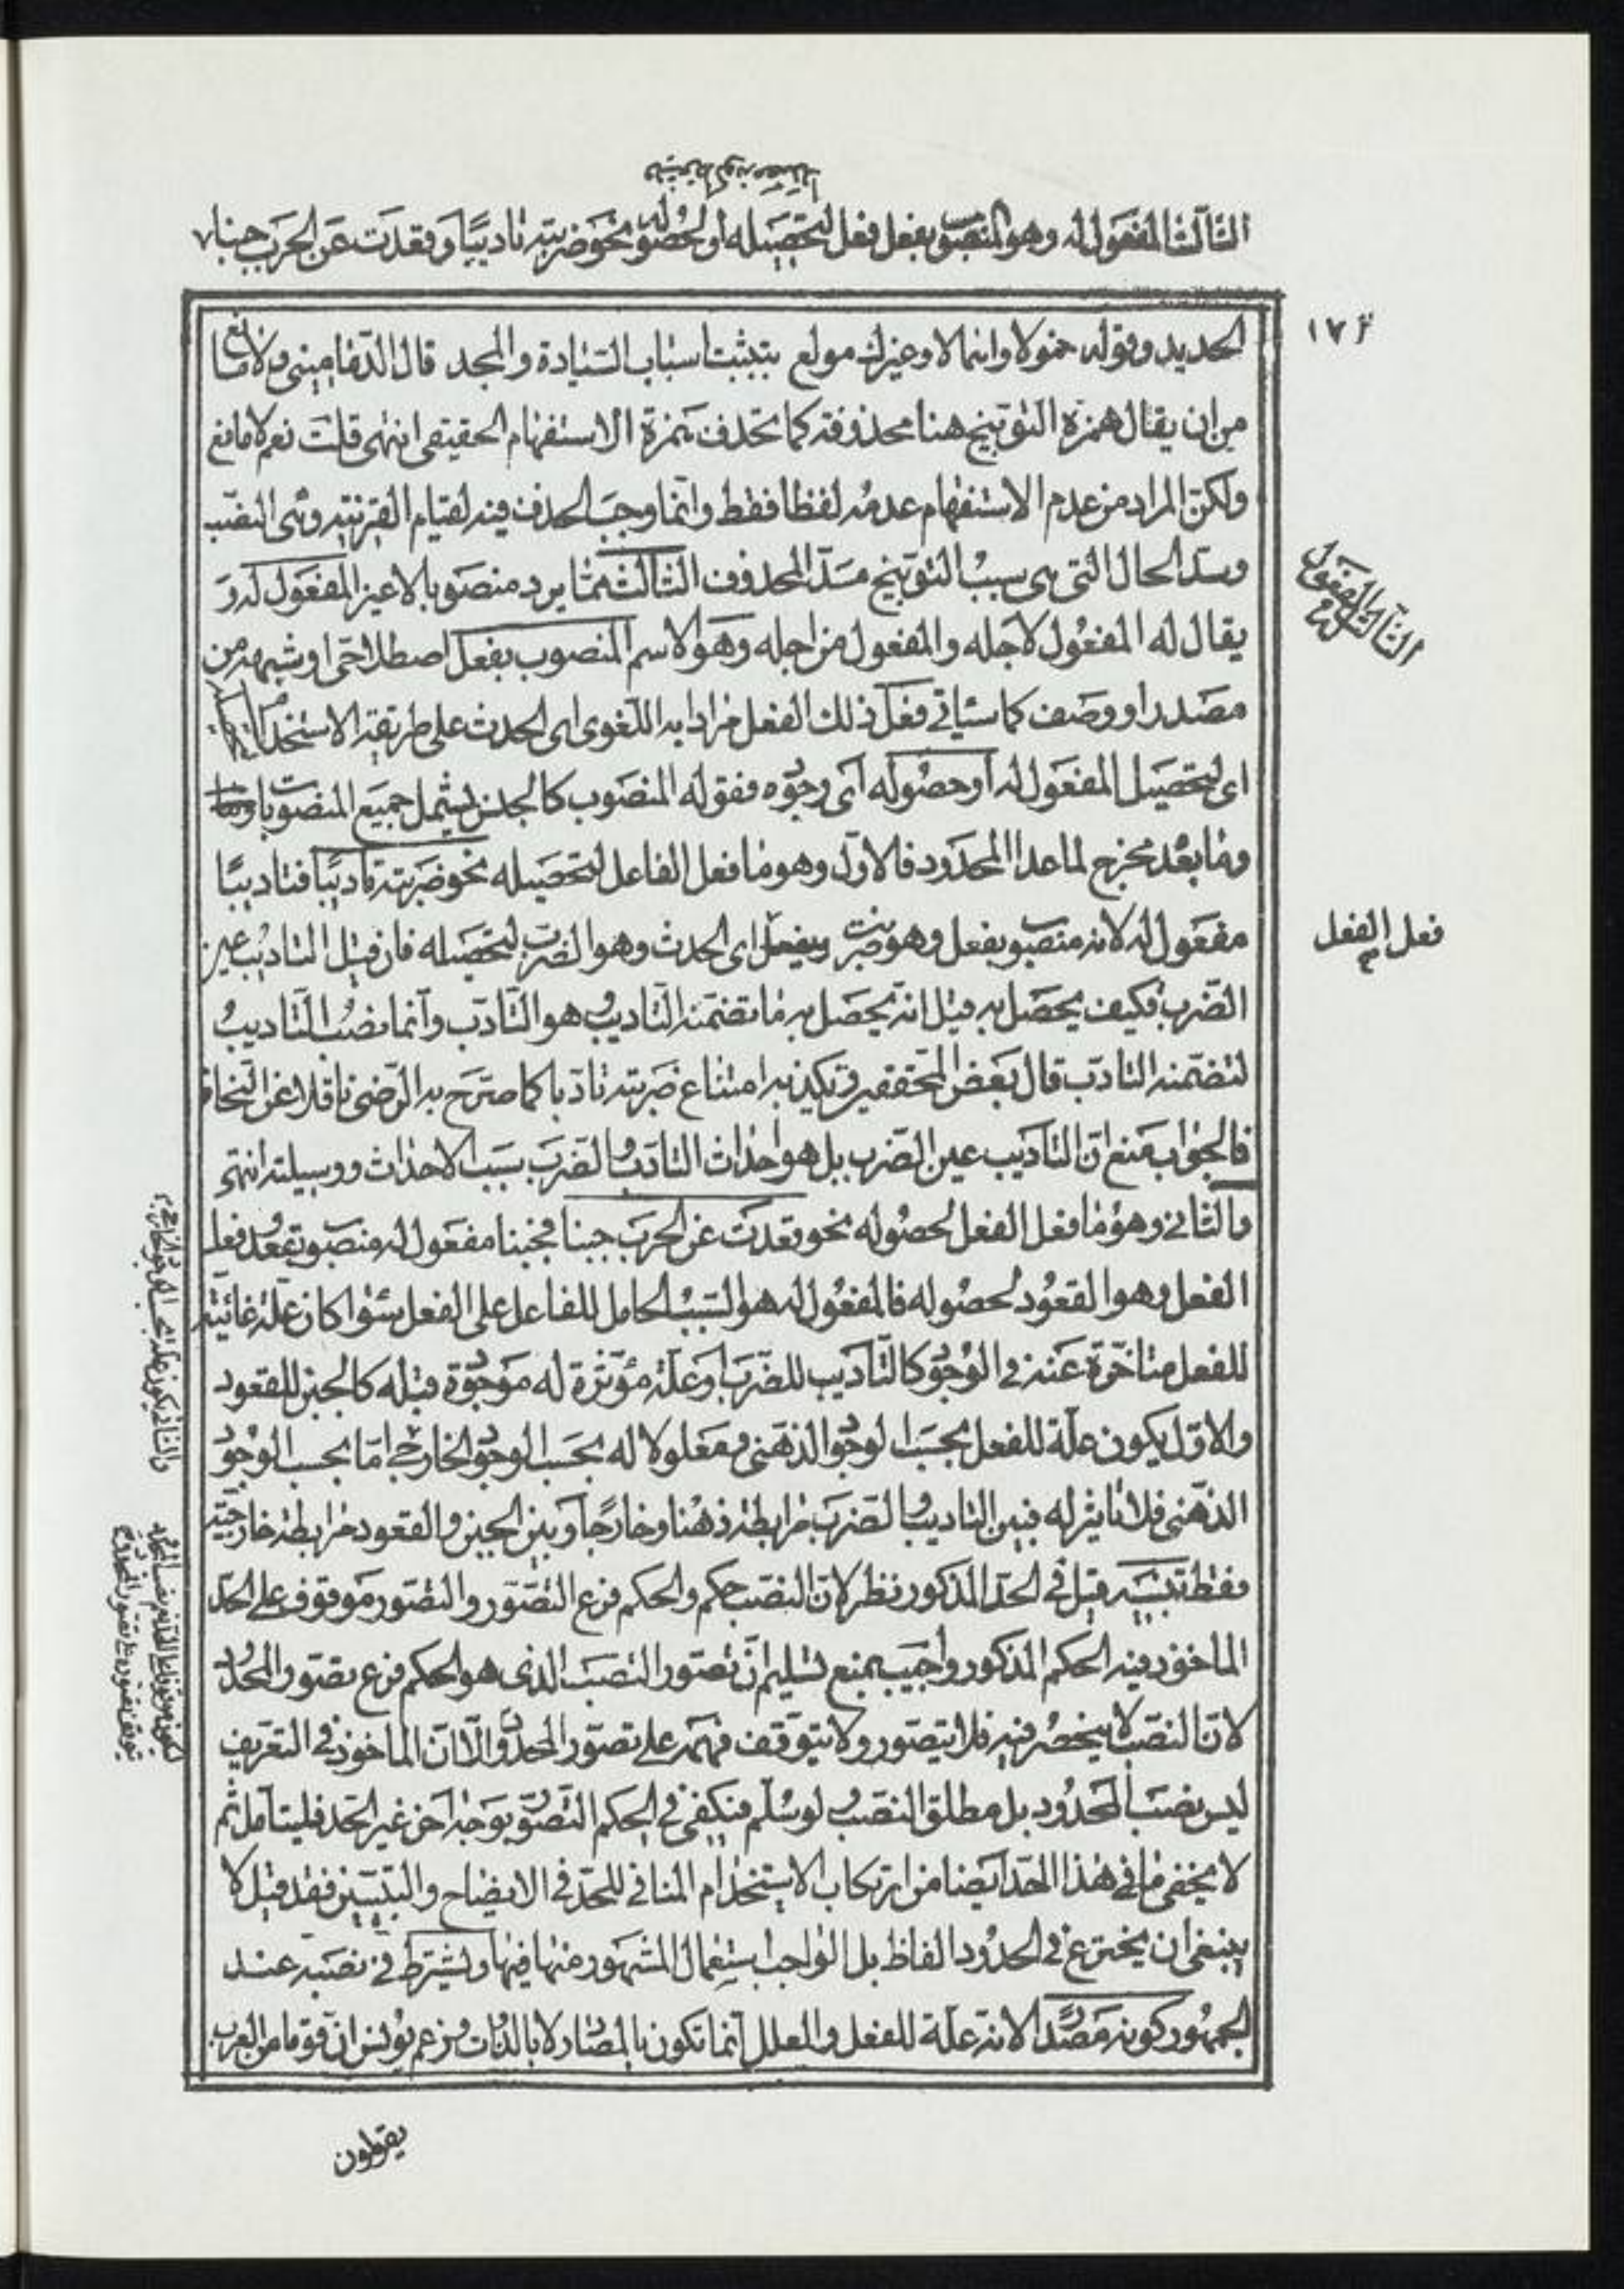 الثالث المفعول له وهو المنصوب بفعل فعل لتحصيله أو لحصوله نحو ضربته تاديبًا وقعدت عن الحرب جبنا
١٧٣
الحديد وقوله خمولا واهمالا وغيرك مولع بتثبيت اسباب السيادة والمجد قال الدماميني ولا مانع
من ان يقال همزة التوبيخ هنا محذوفة كما تحذف همزة الاستفهام الحقيقي انتهى قلت نعم لا مانع
ولكن المراد من عدم الاستفهام عدمه لفظا فقط وانما وجب الحذف فيه لقيام القرينة وهي النصب
وسد الحال التي هي سبب التوبيخ مسد المحذوف الثالث مما يرد منصوبا لا غير المفعول له و
الثالث المفعول له
يقال له المفعول لاجله والمفعول من اجله وهو الاسم المنصوب بفعل اصطلاحي او شبهه من
مصدر او وصف كما سياتي فعل ذلك الفعل مرادا به اللغوى اى الحدث على طريقة الاستخدام
اى لتحصيل المفعول له أو حصوله أى وجوده فقوله المنصوب كالجنس يشمل جميع المنصوبات
وما بعد مخرج لما عدا المحدود فالاول وهو ما فعل الفاعل لتحصيله نحو ضربته تاديبًا فتاديبًا
مفعول له لانه منصوب بفعل وهو ضربت وبفعل اى الحدث وهو الضرب لتحصيله فان قيل التاديب عين
فعل الفعل
الضرب فكيف يحصل به قيل انه يحصل به ما تضمنه التاديب هو التأدب وانما نصب التاديب
لتضمنه التادب قال بعض المحققين ويكذبه امتناع ضربته تادبا كما صرح به الرضي ناقلا عن النحاة
فالجواب منع ان التاديب عين الضرب بل هو احداث التادب والضرب سبب الاحداث ووسيلته انتهى
والثانى وهو ما فعل الفعل لحصوله نحو قعدت عن الحرب جبنا فجبنا مفعول له منصوب بقعد فعل
الفعل وهو القعود لحصوله فالمفعول له هو السبب الحامل للفاعل على الفعل سواء كان علة غائية
للفعل متاخرة عنه في الوجود كالتاديب للضرب أو علة مؤثرة له موجودة قبله كالجبن للقعود
والاول يكون علة للفعل بحسب الوجود الذهني ومعلولا له بحسب الوجود الخارجي اما بحسب الوجود
الذهني فلا تاثير له فبين التاديب والضرب رابطة ذهنا وخارجا وبين الجبن والقعود رابطة خارجية
فقط تنبيه قيل في الحد المذكور نظر لان النصب حكم والحكم فرع التصور والتصور موقوف على الحد
الماخوذ فيه الحكم المذكور واجيب بمنع تسليم ان تصور النصب الذى هو الحكم فرع تصور المحدود
لان النصب لا ينحصر فيه فلا يتصور ولا يتوقف فهمه على تصور المحدود والا ان الماخوذ في التعريف
ليس نصب المحدود بل مطلق النصب ولو سلم فيكفي في الحكم التصور بوجه آخر غير الحد فليتامل ثم
لا يخفى ما في هذا الحد ايضا من ارتكاب الاستخدام المنافي للحد في الايضاح والتبيين فقد قيل لا
ينبغي ان يخترع في الحدود الفاظ بل الواجب استعمال المشهور منها فيها ويشترط في نصبه عند
الجمهور كونه مصدرًا لانه علة للفعل والعلل انما تكون بالمصادر لا بالذوات وزعم يونس ان قوما من العرب
يقولون